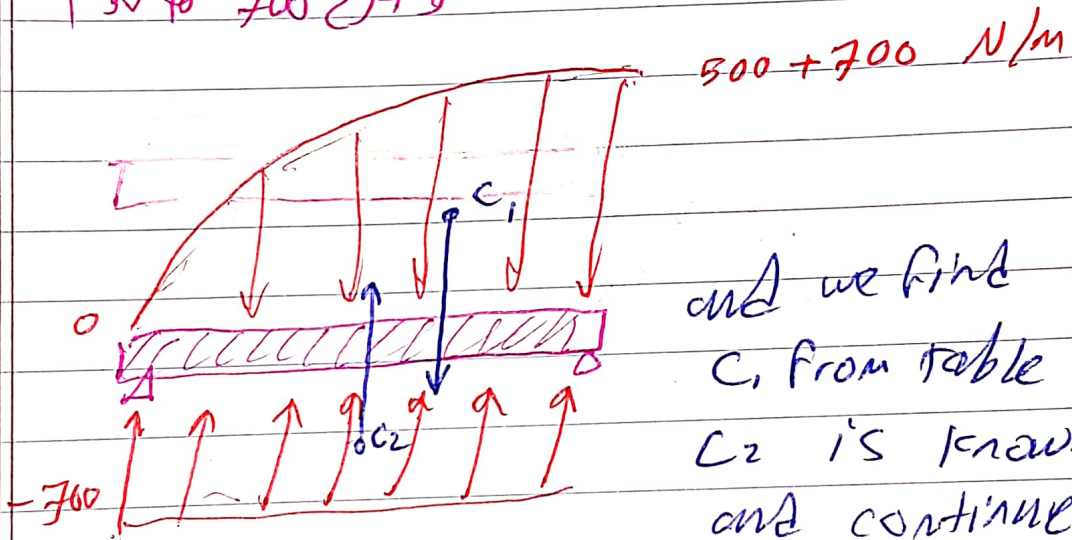 500 + 700 N/m
C1
0
and we find
C1 from table
C2
C2 is know
-700
and continue